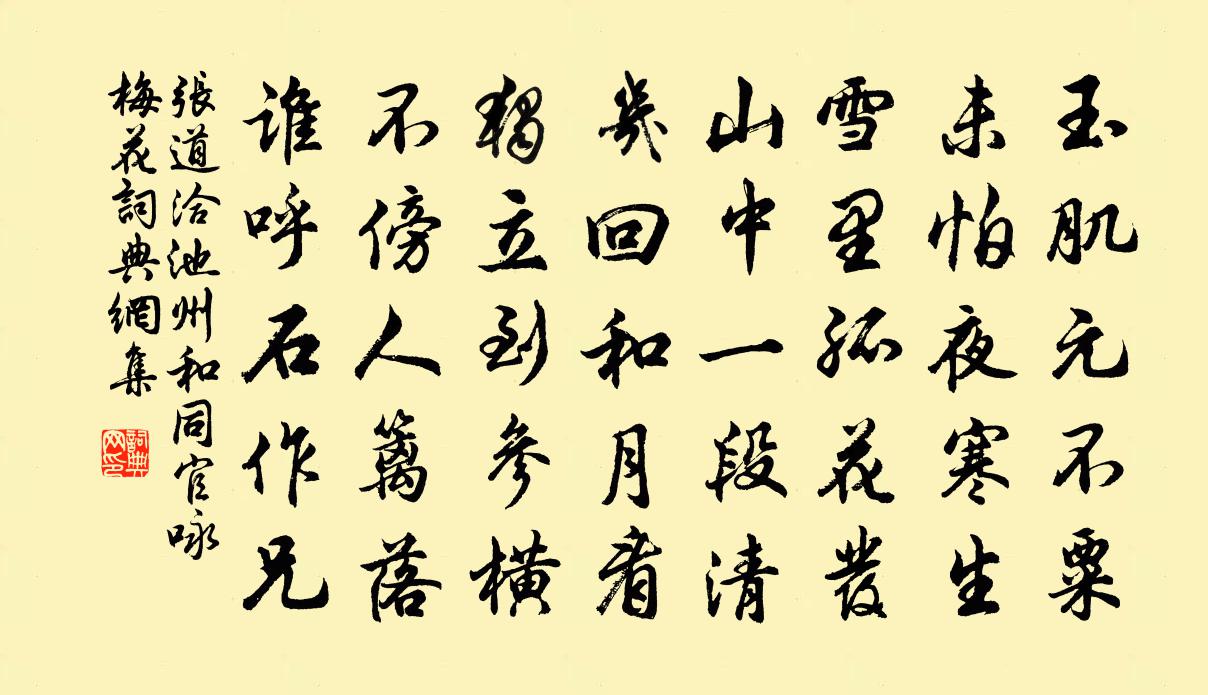 玉肌元不粟
未怕夜寒生
雪里孤花發
山中一段清
幾回和月看
獨立到參橫
不傍人籬落
誰呼石作兄
張道洽池州和同官咏
梅花詞典網集
詞典
网印